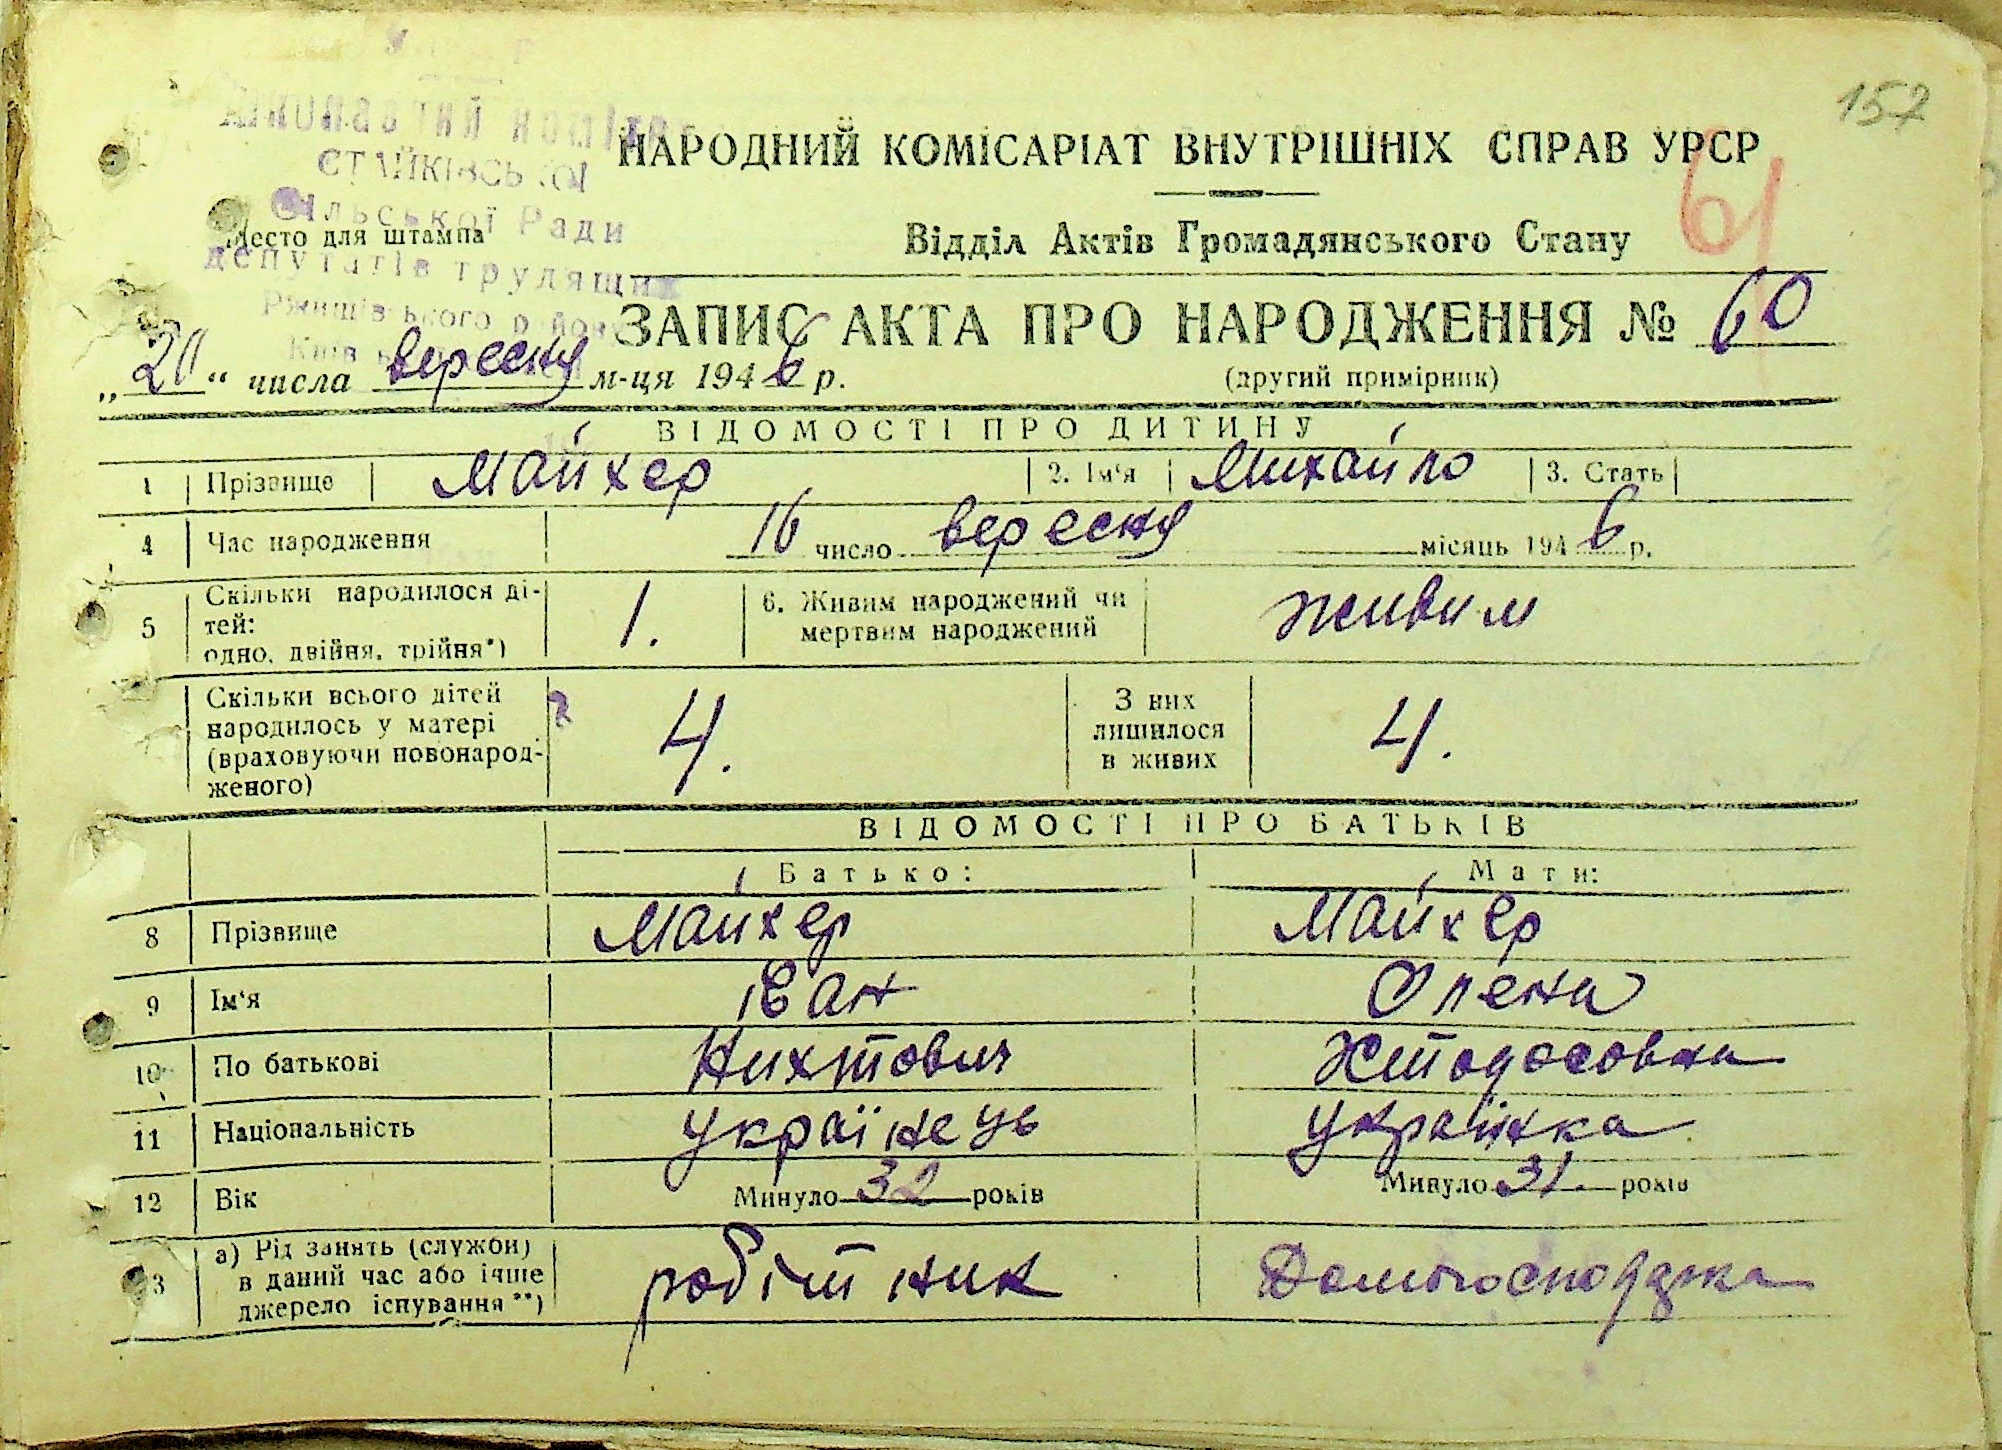 157
Виконавчий комітет
СТАЙКІВСЬКОЇ
Сільської Ради
депутатів трудящих
Ржищівського району
НАРОДНИЙ КОМІСАРІАТ ВНУТРІШНІХ СПРАВ УРСР
61
Место для штампа
Відділ Актів Громадянського Стану
ЗАПИС АКТА ПРО НАРОДЖЕННЯ № 60
„20“ числа вересня м-ця 1946 р.
(другий примірник)
ВІДОМОСТІ ПРО ДИТИНУ
1 Прізвище Майхер 2. Ім‘я Михайло 3. Стать
4 Час народження 16 число вересня місяць 1946 р.
5 Скільки народилося ді-
тей:
одно, двійня, трійня*) 1. 6. Живим народжений чи
мертвим народжений живим
Скільки всього дітей
народилось у матері
(враховуючи новонарод-
женого) 4. З них
лишилося
в живих 4.
ВІДОМОСТІ ПРО БАТЬКІВ
Батько: Мати:
8 Прізвище Майхер Майхер
9 Ім‘я Іван Олена
10 По батькові Нихтович Хтодосовна
11 Національність українець українка
12 Вік Минуло 32 років Минуло 31. років
13 а) Рід занять (служби)
в даний час або інше
джерело існування**) робітник Домогосподарка